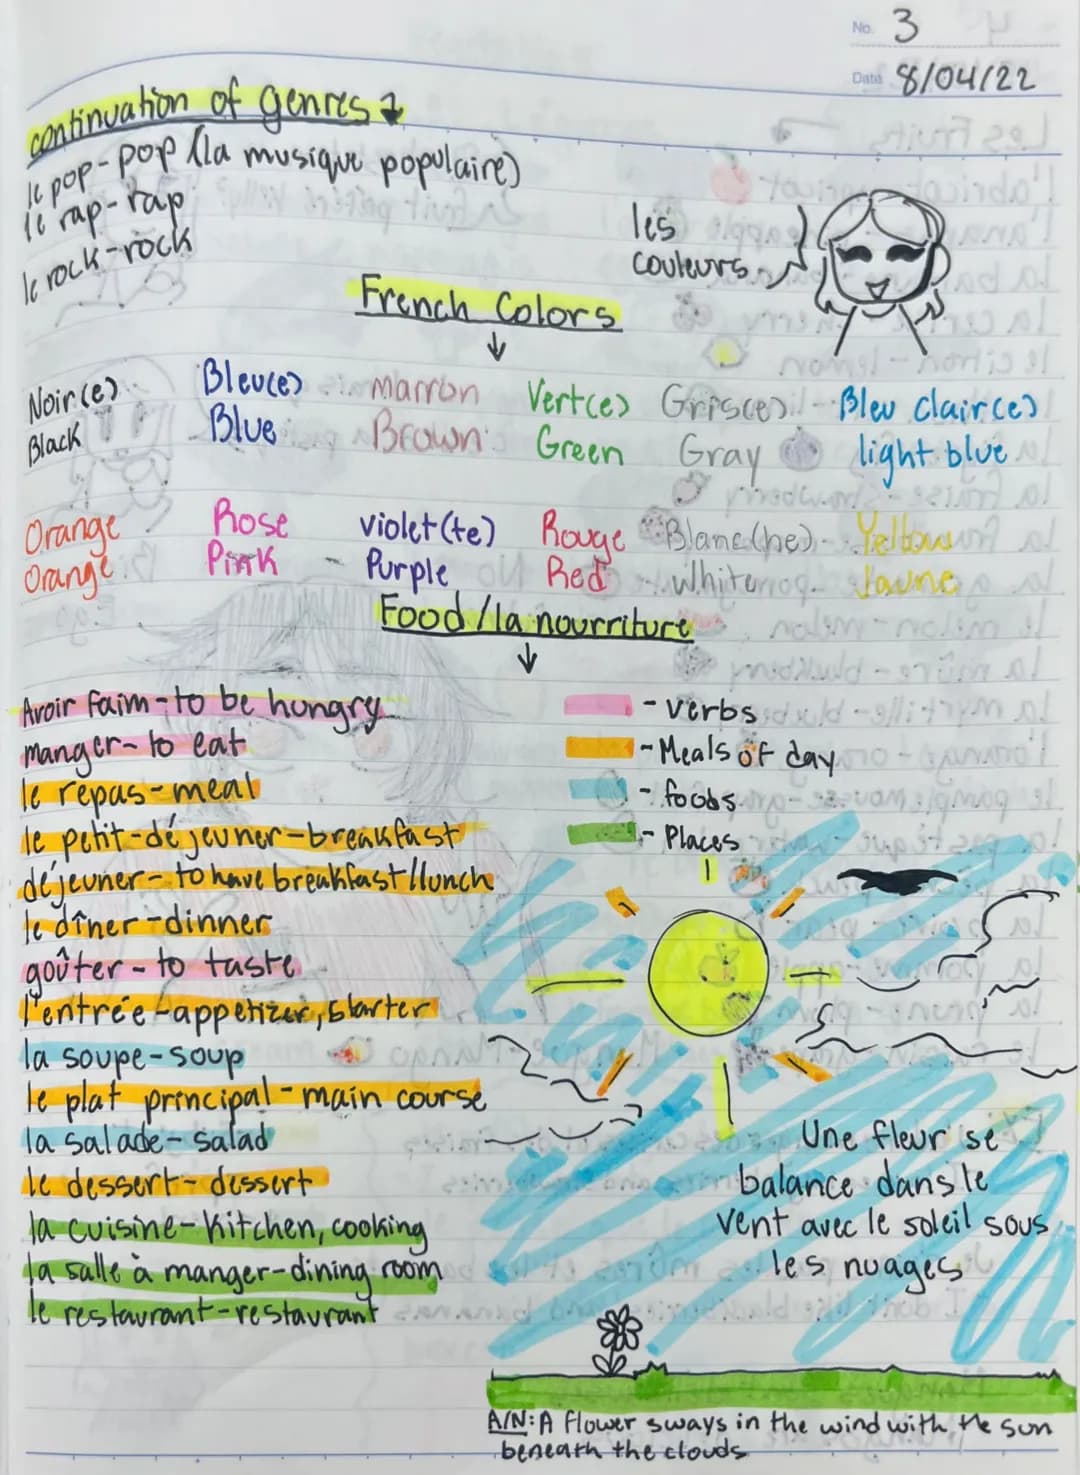 No. 3
Date 8/04/22
continuation of genres
le pop-pop (la musique populaire)
le rap-rap
le rock-rock
les
couleurs
French Colors
Noir(e) Bleu(e) Marron Vert(e) Gris(e) Bleu clair(e)
Black Blue Brown Green Gray light blue
Orange Rose violet(te) Rouge Blanc(he) Yellow
Orange Pink Purple Red White Jaune
Food/la nourriture
Avoir faim-to be hungry
manger-to eat
le repas-meal
le petit-déjeuner-breakfast
déjeuner-to have breakfast/lunch
le dîner-dinner
goûter-to taste
l'entrée-appetizer, starter
la soupe-soup
le plat principal-main course
la salade-salad
le dessert-dessert
la cuisine-kitchen, cooking
la salle à manger-dining room
le restaurant-restaurant
-verbs
-Meals of day
-foods
-Places
Une fleur se
balance dans le
vent avec le soleil sous
les nuages
A/N: A flower sways in the wind with the sun
beneath the clouds